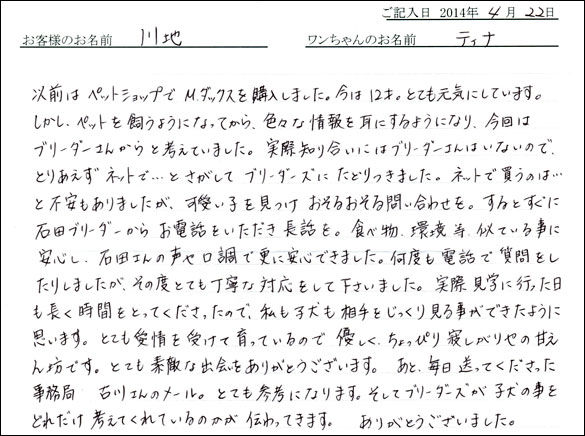 ご記入日 2014年 4月 22日
お客様のお名前 川地 ワンちゃんのお名前 ティナ
以前は ペットショップで M.ダックスを購入しました。今は12才。とても元気にしています。
しかし、ペットを飼うようになってから、色々な情報を耳にするようになり、今回は
ブリーダーさんからと考えていました。実際知り合いにはブリーダーさんはいないので、
とりあえず ネットで…とさがして ブリーダーズに たどりつきました。ネットで買うのは…
と不安もありましたが、可愛い子を見つけ おそるおそる問い合わせを。するとすぐに
石田ブリーダーから お電話をいただき 長話を。食べ物、環境 等、似ている事に
安心し、石田さんの声や口調で更に安心できました。何度も電話で質問をし
たりしましたが、その度とても丁寧な対応をして下さいました。実際見学に行った日
も長く時間をとってくださったので、私も子犬も相手をじっくり見る事ができたように
思います。とても愛情を受けて育っているので 優しく、ちょっぴり寂しがりやの甘え
ん坊です。とても素敵な出会をありがとうございます。 あと、毎日送ってくださった
事務局 石川さんのメール。とても参考になります。そしてブリーダーズが子犬の事を
どれだけ考えてくれているのかが 伝わってきます。 ありがとうございました。